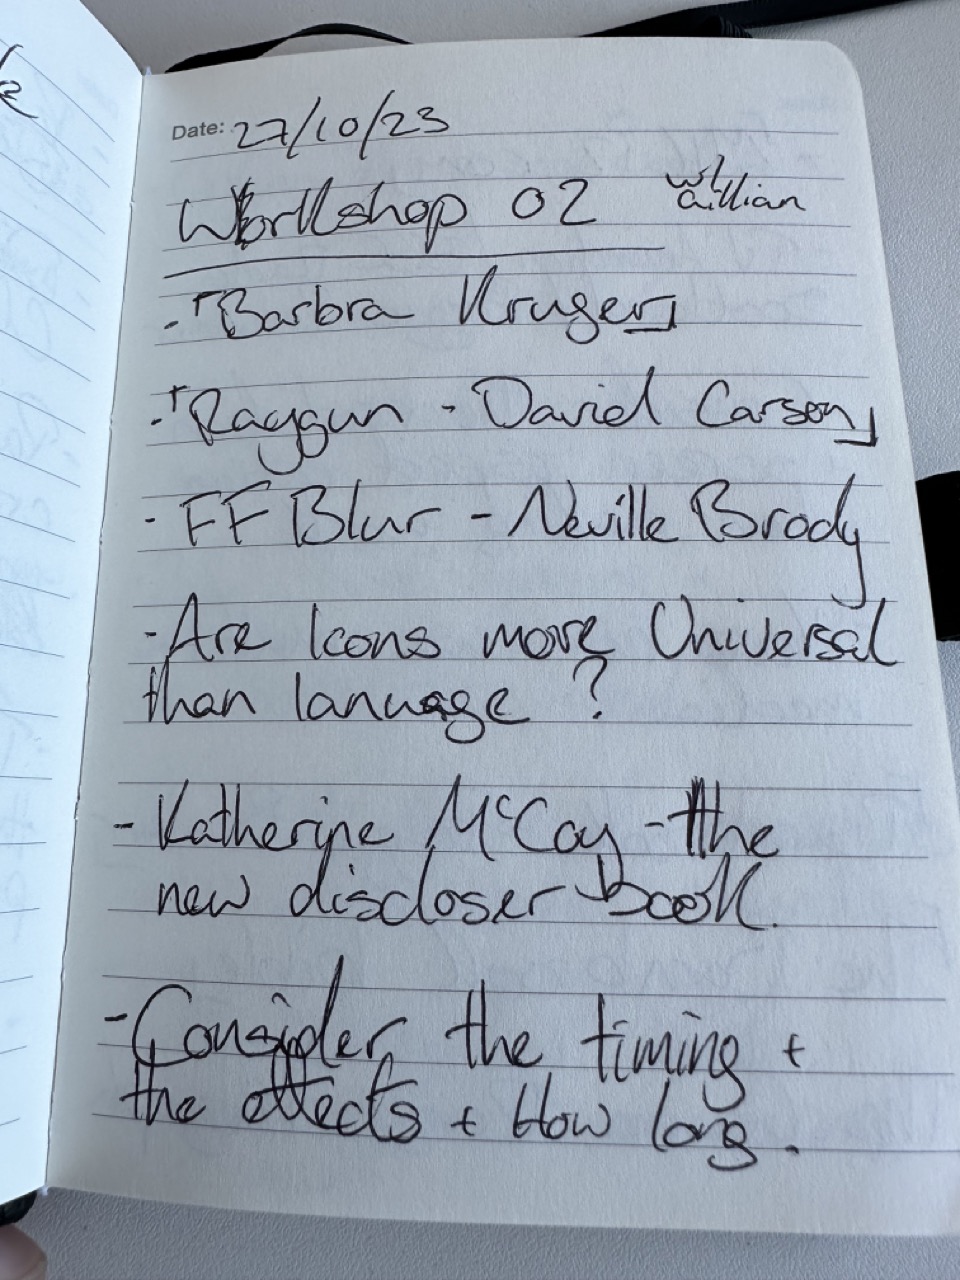 Date: 27/10/23
Workshop 02 w/ William
- "Barbra Kruger"
- "Raygun - David Carson"
- FF Blur - Neville Brody
- Are Icons more Universal
than lanuage ?
- Katherine McCoy - the
new discloser book.
- Consider the timing +
the effects + How long.